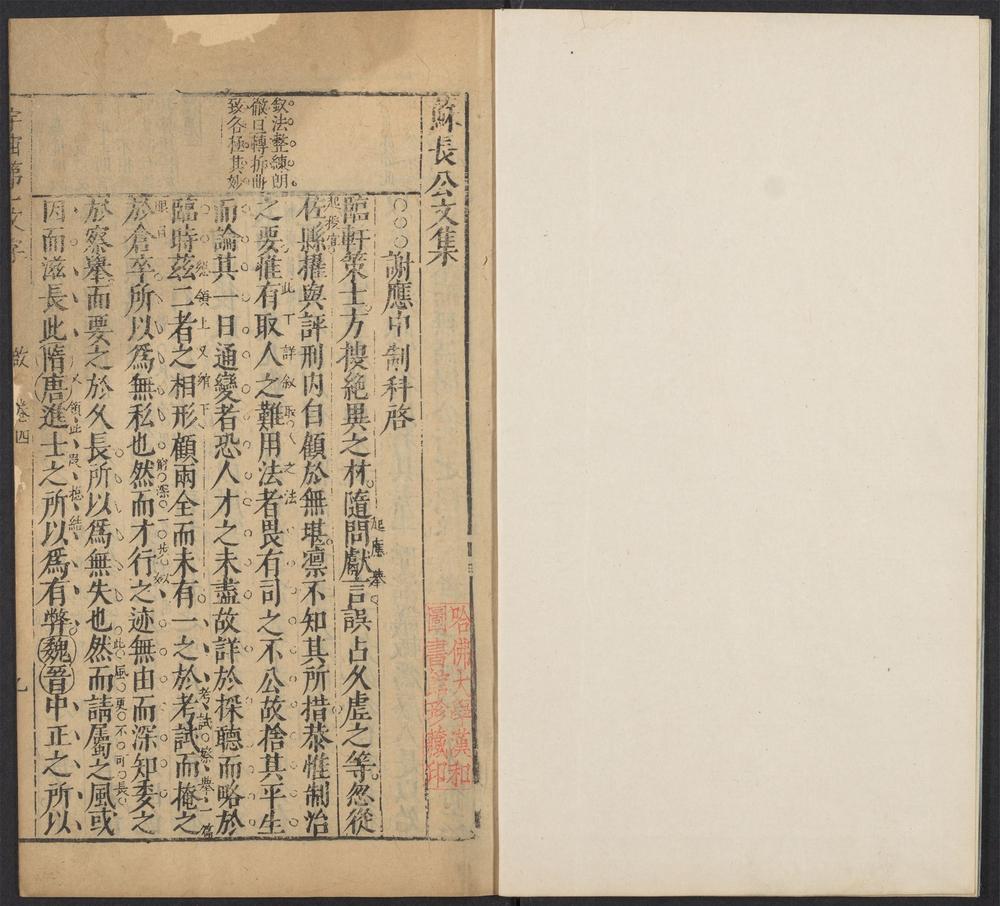 蘇長公文集
哈佛大學漢和
圖書館珍藏印
敘法整練朗
徹且轉折曲
致各極其妙
○○○謝應中制科啓
臨軒策士方摟絶異之材隨問獻言誤占久虛之等忽從
佐縣擢與評刑内自顧於無堪凛不知其所措恭惟制治
之要惟有取人之難用法者畏有司之不公故捨其平生
而論其一日通變者恐人才之未盡故詳於採聽而略於
臨時茲二者之相形顧兩全而未有一之於考試而掩之
於倉卒所以爲無私也然而才行之迹無由而深知委之
於察舉而要之於久長所以爲無失也然而請屬之風或
因而滋長此隋唐進士之所以爲有弊魏晉中正之所以
起應舉
起授官
此下詳叙取人之法
總領上又綰下
考試察舉一篇
眼目
窮深一步妙
此風更不可長
領此段總結
卷四